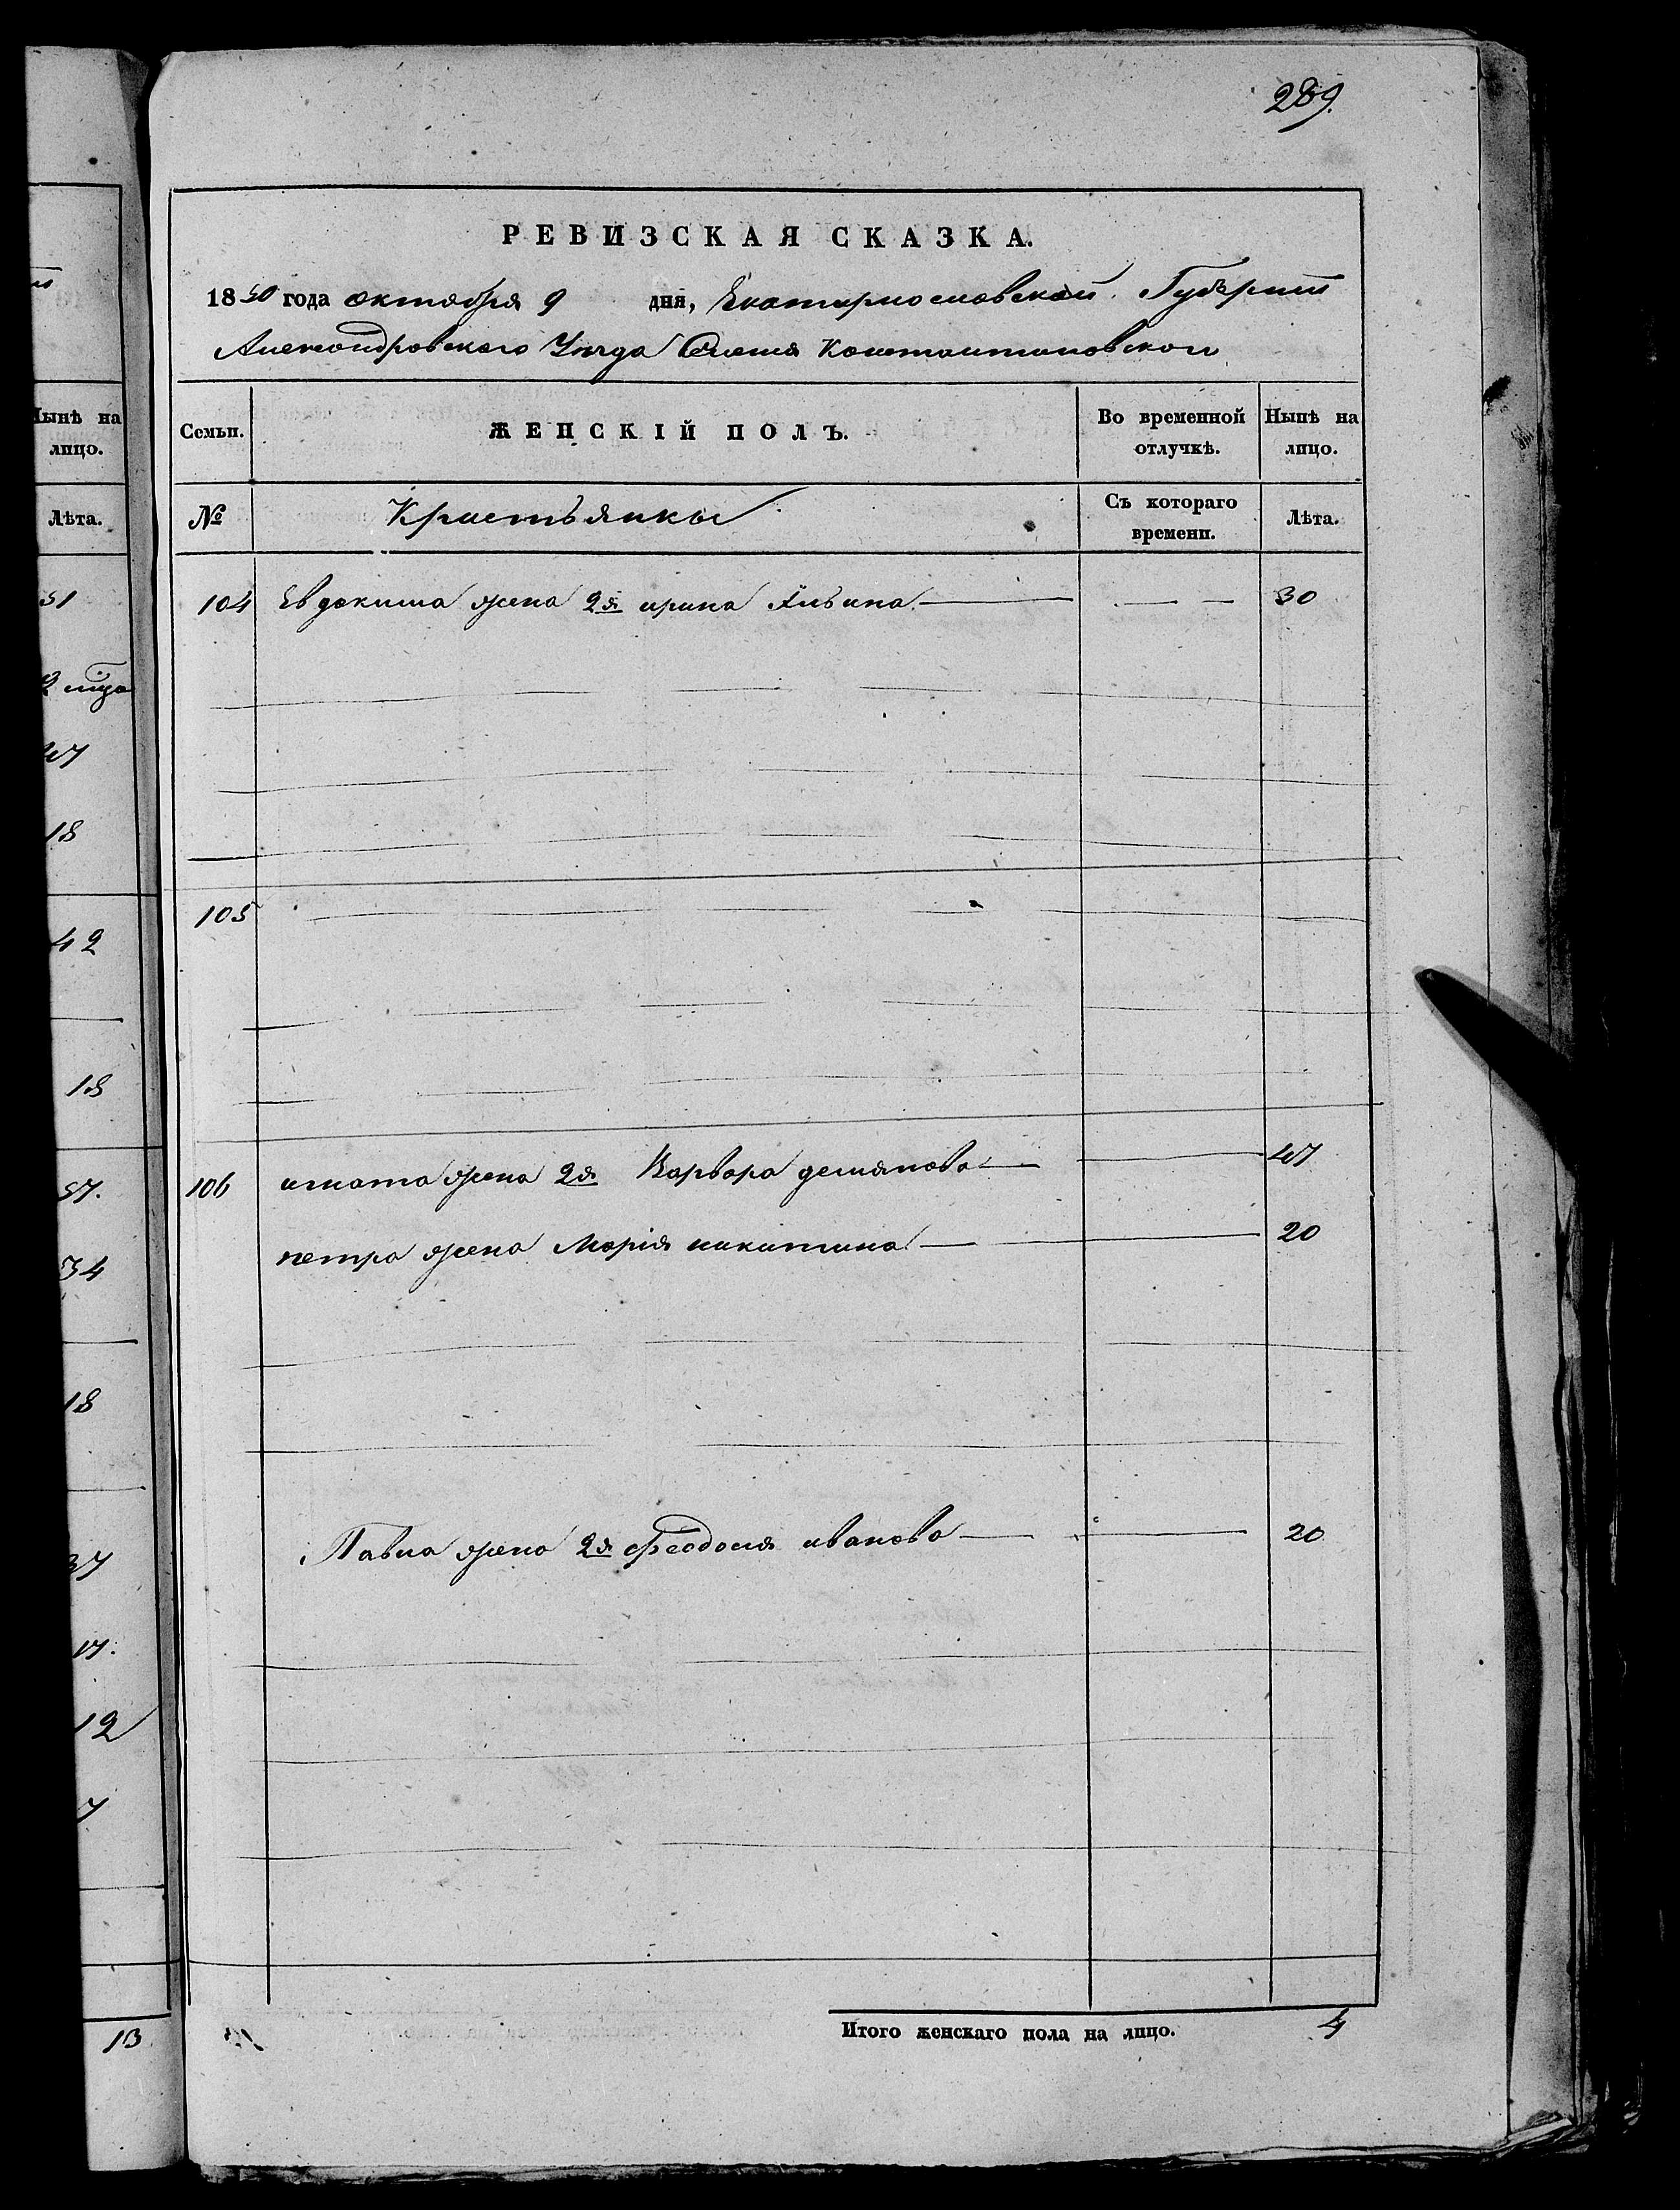 289.
РЕВИЗСКАЯ СКАЗКА.
1850 года октября 9 дня, Екатеринославской Губернии
Александровского Уезда Селения Константиновского
Семьи. ЖЕНСКІЙ ПОЛЪ. Во временной отлучкѣ. Нынѣ на лицо.
№ Кристьянки Съ котораго времени. Лѣта.
104 Евдокима жена 2я ирина 30
105
106 игната жена 2я Варвара демянова 47
петра жена Марія никитина 20
Павла жена 2я Феодосия иванова 20
Итого женскаго пола на лицо. 4
Нынѣ на
лицо.
Лѣта.
51
47
18
42
18
57.
34
18
37
17.
12
7
13